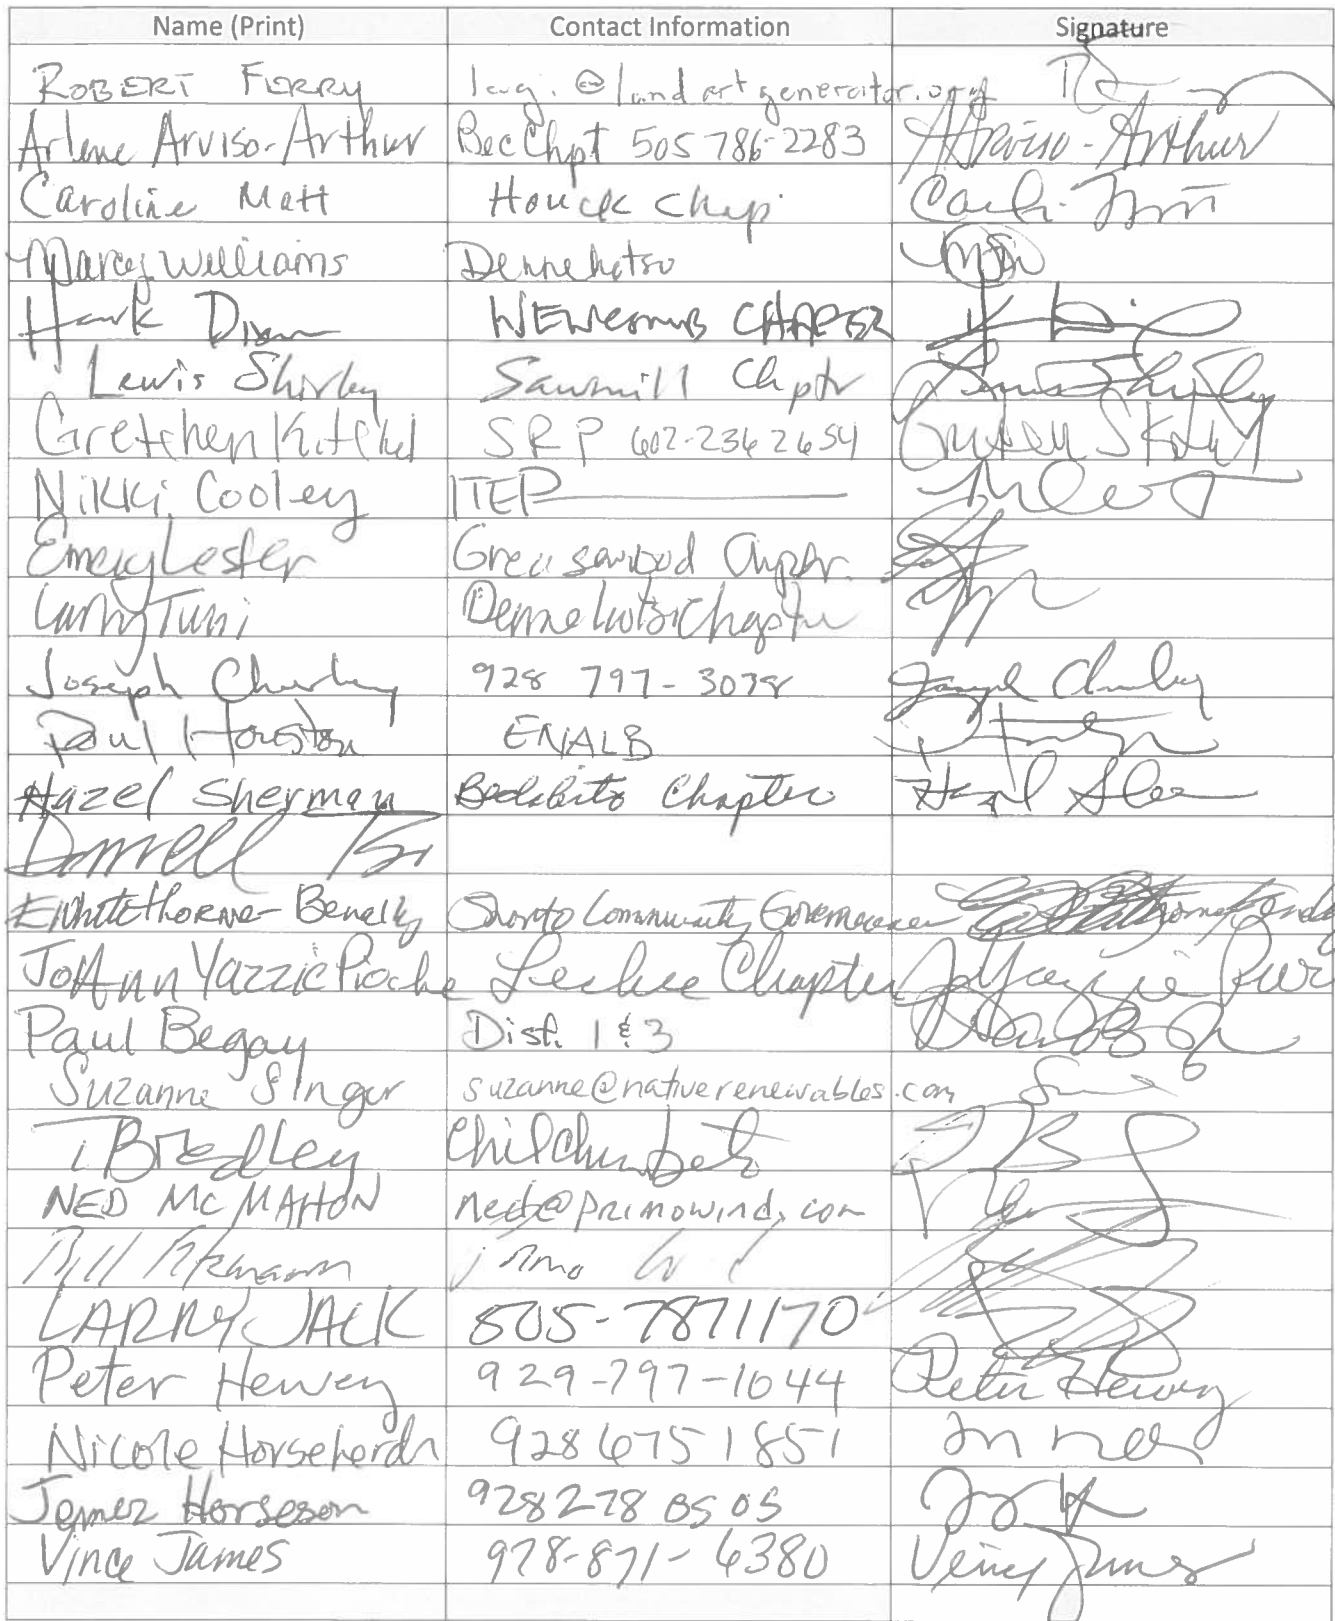 Name (Print) Contact Information Signature
ROBERT FERRY lagi@landartgenerator.org
Arlene Arviso-Arthur BecChpt 505 786-2283 AArviso-Arthur
Caroline Matt Houck Chap
Marcy Williams Dennehotso
Hank Dixon NEWCOMB CHAPTER
Lewis Shirley Sawmill Chptr Lewis Shirley
Gretchen Kitchel SRP 602-236 2654
Nikki Cooley ITEP
Emery Lester Greasewood Chptr.
Tuni Dennehotso Chapter
Joseph Charley 928 797-3038 Joseph Charley
Paul Houston ENALB
Hazel Sherman Chapter Hazel
Darrell
EWhitethorne-Benally Shonto Community Governance
JoAnn Yazzie Pioche Lechee Chapter JoYazzie
Paul Begay Dist. 1 & 3
Suzanne Singer suzanne@nativerenewables.com
TBradley Chilchinbeto
NED MCMAHON ned@primowind.com
Bill
LARRY JACK 505-7871170
Peter Hewey 929-797-1044 Peter Hewey
Nicole Horseherder 928 675 1851
Jemez Horseson 928 278 0505
Vince James 928-871-6380 Vince James